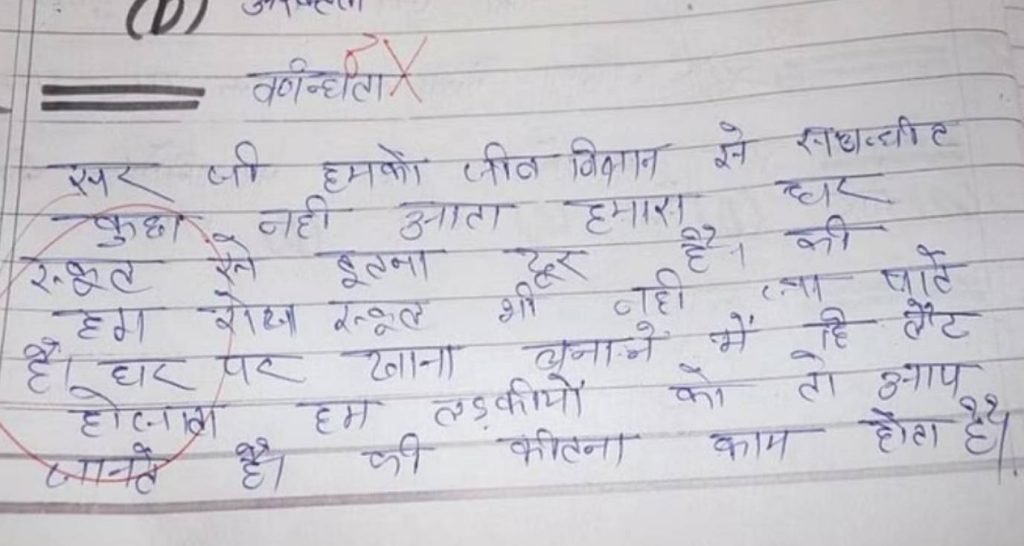 (D)
वर्णान्धता
सर जी हमको जीव विज्ञान से सम्बन्धीत
कुछा नही आता हमारा घर
स्कूल से इतना दूर है। की
हम रोज स्कूल भी नही जा पाते
है। घर पर खाना बनाने में हि लेट
होजाता हम लड़कीयों को तो आप
जानते है। की कीतना काम होता है।